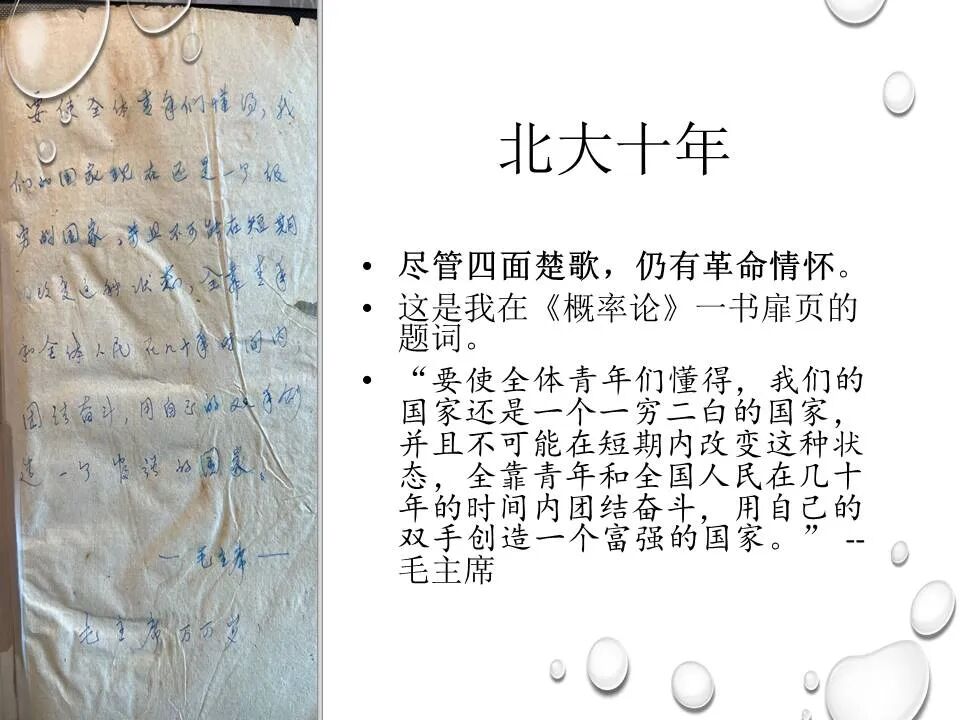 要使全体青年们懂得，我
们的国家现在还是一个很
穷的国家，并且不可能在短期
内改变这种状态，全靠青年
和全体人民在几十年时间内，
团结奋斗，用自己的双手创
造一个富强的国家。
— 毛主席 —
毛主席万万岁
北大十年
• 尽管四面楚歌，仍有革命情怀。
• 这是我在《概率论》一书扉页的
题词。
• “要使全体青年们懂得，我们的
国家还是一个一穷二白的国家，
并且不可能在短期内改变这种状
态，全靠青年和全国人民在几十
年的时间内团结奋斗，用自己的
双手创造一个富强的国家。” --
毛主席